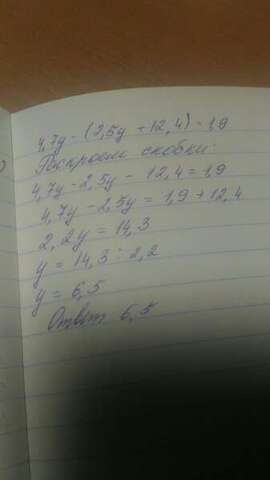 4,7y - (2,5y + 12,4) = 1,9
Раскроем скобки:
4,7y - 2,5y - 12,4 = 1,9
4,7y - 2,5y = 1,9 + 12,4
2,2y = 14,3
y = 14,3 : 2,2
y = 6,5
Ответ 6,5